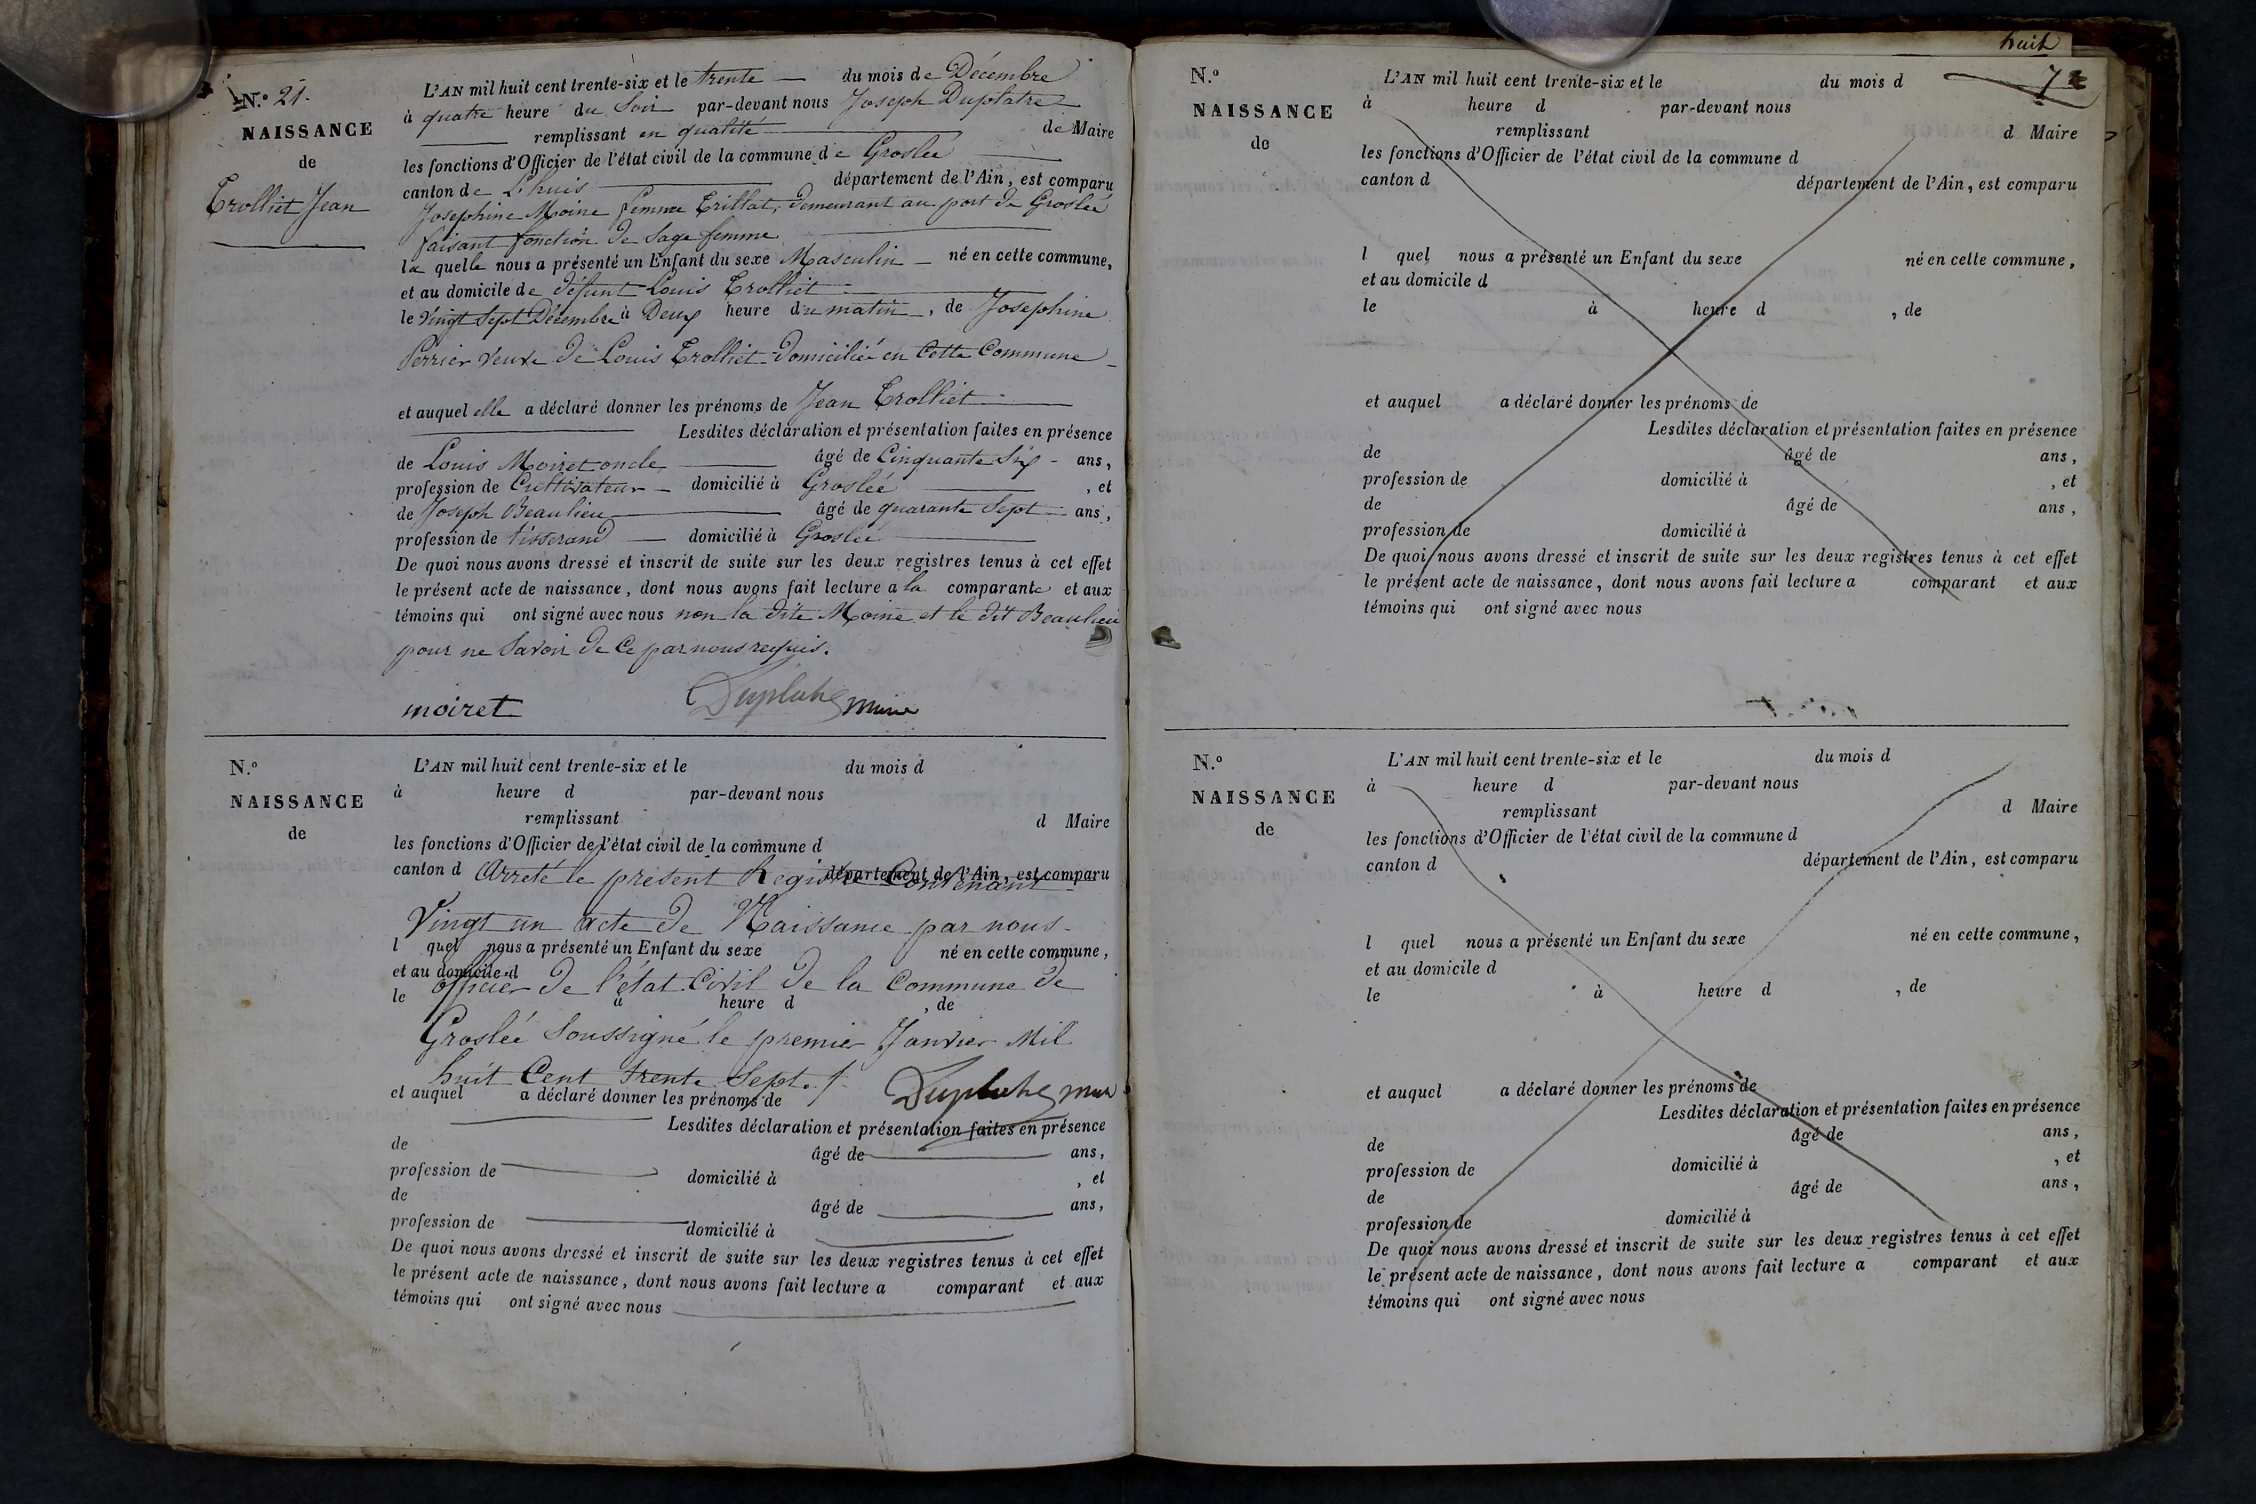 N.o 21.
NAISSANCE
de
Trolliet Jean
L'AN mil huit cent trente-six et le trente du mois de Décembre
à quatre heure du Soir par-devant nous Joseph Duplatre
remplissant en qualité de Maire
les fonctions d'Officier de l'état civil de la commune de Groslée
canton de Lhuis département de l'Ain, est comparu
Josephine Moine femme Trillat, demeurant au port de Groslée
faisant fonction de Sage femme
la quelle nous a présenté un Enfant du sexe Masculin né en cette commune,
et au domicile de défunt Louis Trolliet
le Vingt Sept Décembre à Deux heure du matin, de Josephine
Perrier Veuve de Louis Trolliet domiciliée en Cette Commune
et auquel elle a déclaré donner les prénoms de Jean Trolliet
Lesdites déclaration et présentation faites en présence
de Louis Moiret oncle âgé de Cinquante Six ans,
profession de Cultivateur domicilié à Groslée, et
de Joseph Beaulieu âgé de quarante Sept ans,
profession de tisserand domicilié à Groslée
De quoi nous avons dressé et inscrit de suite sur les deux registres tenus à cet effet
le présent acte de naissance, dont nous avons fait lecture a la comparante et aux
témoins qui ont signé avec nous non la dite Moine et le dit Beaulieu
pour ne Savoir de Ce par nous requis.
moiret Duplatre maire
N.o
NAISSANCE
de
L'AN mil huit cent trente-six et le du mois d
à heure d par-devant nous
remplissant d Maire
les fonctions d'Officier de l'état civil de la commune d
canton d département de l'Ain, est comparu
Arrêté le présent Registre Contenant
Vingt un acte de Naissance par nous
l quel nous a présenté un Enfant du sexe né en cette commune,
et au domicile d
officier de l'état Civil de la Commune de
le à heure d , de
Groslée Soussigné le premier Janvier Mil
huit Cent trente Sept. Duplatre maire
et auquel a déclaré donner les prénoms de
Lesdites déclaration et présentation faites en présence
de âgé de ans,
profession de domicilié à , et
de âgé de ans,
profession de domicilié à
De quoi nous avons dressé et inscrit de suite sur les deux registres tenus à cet effet
le présent acte de naissance, dont nous avons fait lecture a comparant et aux
témoins qui ont signé avec nous
huit
N.o
NAISSANCE
de
L'AN mil huit cent trente-six et le du mois d
à heure d par-devant nous
remplissant d Maire
les fonctions d'Officier de l'état civil de la commune d
canton d département de l'Ain, est comparu
l quel nous a présenté un Enfant du sexe né en cette commune,
et au domicile d
le à heure d , de
et auquel a déclaré donner les prénoms de
Lesdites déclaration et présentation faites en présence
de âgé de ans,
profession de domicilié à , et
de âgé de ans,
profession de domicilié à
De quoi nous avons dressé et inscrit de suite sur les deux registres tenus à cet effet
le présent acte de naissance, dont nous avons fait lecture a comparant et aux
témoins qui ont signé avec nous
N.o
NAISSANCE
de
L'AN mil huit cent trente-six et le du mois d
à heure d par-devant nous
remplissant d Maire
les fonctions d'Officier de l'état civil de la commune d
canton d département de l'Ain, est comparu
l quel nous a présenté un Enfant du sexe né en cette commune,
et au domicile d
le à heure d , de
et auquel a déclaré donner les prénoms de
Lesdites déclaration et présentation faites en présence
de âgé de ans,
profession de domicilié à , et
de âgé de ans,
profession de domicilié à
De quoi nous avons dressé et inscrit de suite sur les deux registres tenus à cet effet
le présent acte de naissance, dont nous avons fait lecture a comparant et aux
témoins qui ont signé avec nous